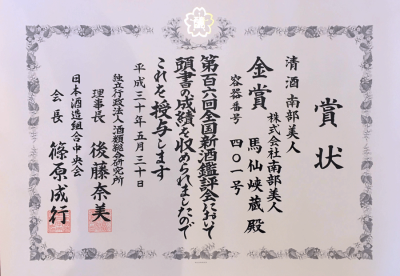 賞状
清酒 南部美人
株式会社南部美人
馬仙峡蔵 殿
金賞
容器番号 四〇一号
第百六回全国新酒鑑評会において
頭書の成績を収められましたので
これを授与します
平成三十年五月三十日
独立行政法人酒類総合研究所
理事長 後藤奈美
日本酒造組合中央会
会長 篠原成行